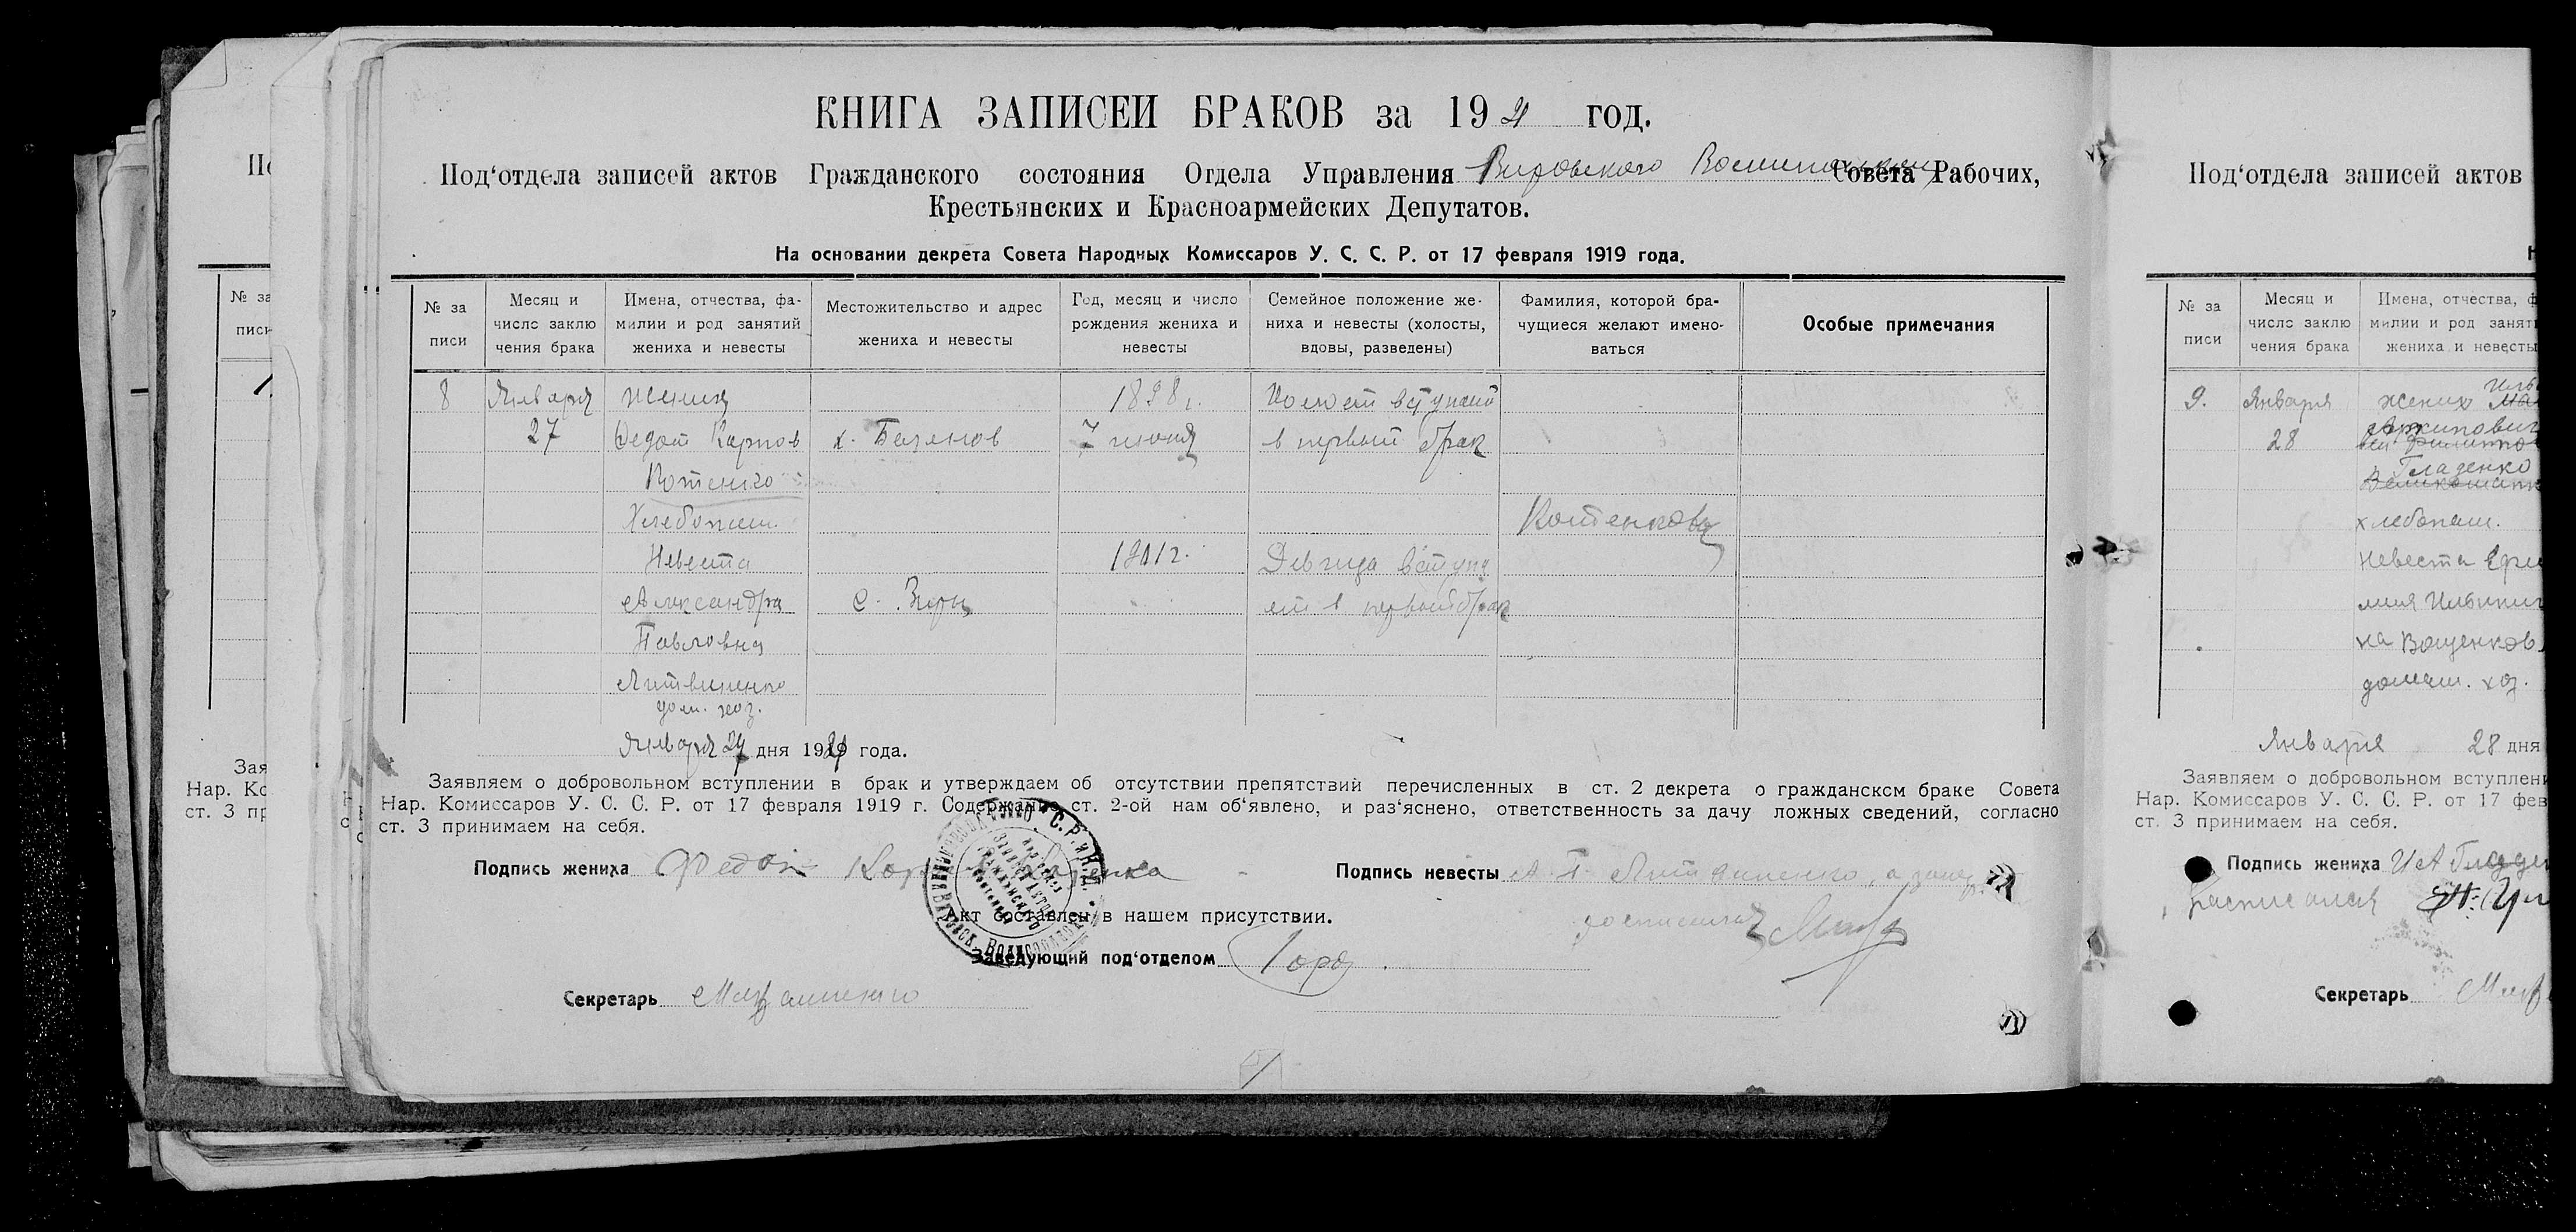 КНИГА ЗАПИСЕЙ БРАКОВ за 1921 год.
Под‘отдела записей актов Гражданского состояния Отдела Управления Вировского Совета Рабочих,
Крестьянских и Красноармейских Депутатов.
На основании декрета Совета Народных Комиссаров У. С. С. Р. от 17 февраля 1919 года.
№ за писи
Месяц и число заклю чения брака
Имена, отчества, фа- милии и род занятий жениха и невесты
Местожительство и адрес жениха и невесты
Год, месяц и число рождения жениха и невесты
Семейное положение же- ниха и невесты (холосты, вдовы, разведены)
Фамилия, которой бра- чущиеся желают имено- ваться
Особые примечания
8 Января Жених 1898 г. Холост вступает
27 Федот Карпов х. Базилев 7 июня в первый брак
Котенко
Хлебопаш. Котенкова
Невеста 1901 г. Девица вступа
Александра с. Виры ет в первый брак
Павловна
Литвиненко
дом. хоз.
Января 27 дня 1921 года.
Заявляем о добровольном вступлении в брак и утверждаем об отсутствии препятствий перечисленных в ст. 2 декрета о гражданском браке Совета
Нар. Комиссаров У. С. С. Р. от 17 февраля 1919 г. Содержание ст. 2-ой нам об‘явлено, и раз‘яснено, ответственность за дачу ложных сведений, согласно
ст. 3 принимаем на себя.
Подпись жениха Федот
Подпись невесты А. П. Литвиненко, а за нее
росписался
Акт составлен в нашем присутствии.
Заведующий под‘отделом
Секретарь
Под‘отдела записей актов
№ за писи
Месяц и число заклю чения брака
Имена, отчества, ф милии и род занят жениха и невесты
9. Января жених
28 Архипович
Гладенко
хлебопаш.
Невеста Ефи
мия Ильинич
на Ващенков
домаш. хоз.
Января 28 дня
Заявляем о добровольном вступлен
Нар. Комиссаров У. С. С. Р. от 17 фев
ст. 3 принимаем на себя.
Подпись жениха И А Гладен
расписался
Секретарь
№ за
писи
Зая
Нар. Ко
ст. 3 пр